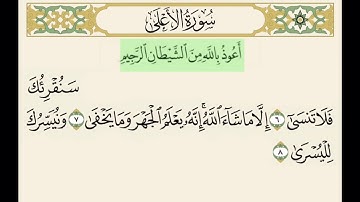 سُورَةُ الأَعْلَى
أَعُوذُ بِاللَّهِ مِنَ الشَّيْطَانِ الرَّجِيمِ
سَنُقْرِئُكَ
فَلَا تَنسَىٰٓ ٦ إِلَّا مَا شَآءَ ٱللَّهُۚ إِنَّهُۥ يَعْلَمُ ٱلْجَهْرَ وَمَا يَخْفَىٰ ٧ وَنُيَسِّرُكَ
لِلْيُسْرَىٰ ٨